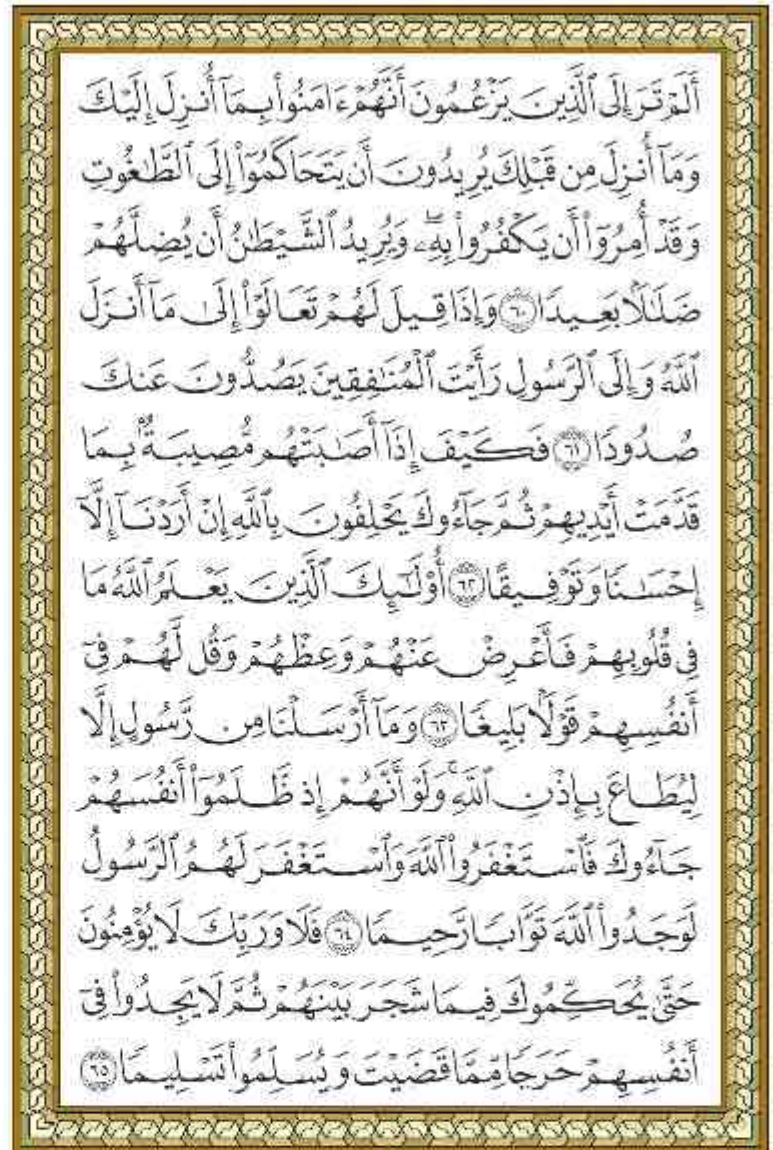 أَلَمْ تَرَ إِلَى ٱلَّذِينَ يَزْعُمُونَ أَنَّهُمْ ءَامَنُوا۟ بِمَآ أُنزِلَ إِلَيْكَ
وَمَآ أُنزِلَ مِن قَبْلِكَ يُرِيدُونَ أَن يَتَحَاكَمُوٓا۟ إِلَى ٱلطَّٰغُوتِ
وَقَدْ أُمِرُوٓا۟ أَن يَكْفُرُوا۟ بِهِۦۖ وَيُرِيدُ ٱلشَّيْطَٰنُ أَن يُضِلَّهُمْ
ضَلَٰلًۢا بَعِيدًا ٦٠ وَإِذَا قِيلَ لَهُمْ تَعَالَوْا۟ إِلَىٰ مَآ أَنزَلَ
ٱللَّهُ وَإِلَى ٱلرَّسُولِ رَأَيْتَ ٱلْمُنَٰفِقِينَ يَصُدُّونَ عَنكَ
صُدُودًا ٦١ فَكَيْفَ إِذَآ أَصَٰبَتْهُم مُّصِيبَةٌۢ بِمَا
قَدَّمَتْ أَيْدِيهِمْ ثُمَّ جَآءُوكَ يَحْلِفُونَ بِٱللَّهِ إِنْ أَرَدْنَآ إِلَّآ
إِحْسَٰنًا وَتَوْفِيقًا ٦٢ أُو۟لَٰٓئِكَ ٱلَّذِينَ يَعْلَمُ ٱللَّهُ مَا
فِى قُلُوبِهِمْ فَأَعْرِضْ عَنْهُمْ وَعِظْهُمْ وَقُل لَّهُمْ فِىٓ
أَنفُسِهِمْ قَوْلًۢا بَلِيغًا ٦٣ وَمَآ أَرْسَلْنَا مِن رَّسُولٍ إِلَّا
لِيُطَاعَ بِإِذْنِ ٱللَّهِۚ وَلَوْ أَنَّهُمْ إِذ ظَّلَمُوٓا۟ أَنفُسَهُمْ
جَآءُوكَ فَٱسْتَغْفَرُوا۟ ٱللَّهَ وَٱسْتَغْفَرَ لَهُمُ ٱلرَّسُولُ
لَوَجَدُوا۟ ٱللَّهَ تَوَّابًا رَّحِيمًا ٦٤ فَلَا وَرَبِّكَ لَا يُؤْمِنُونَ
حَتَّىٰ يُحَكِّمُوكَ فِيمَا شَجَرَ بَيْنَهُمْ ثُمَّ لَا يَجِدُوا۟ فِىٓ
أَنفُسِهِمْ حَرَجًا مِّمَّا قَضَيْتَ وَيُسَلِّمُوا۟ تَسْلِيمًا ٦٥